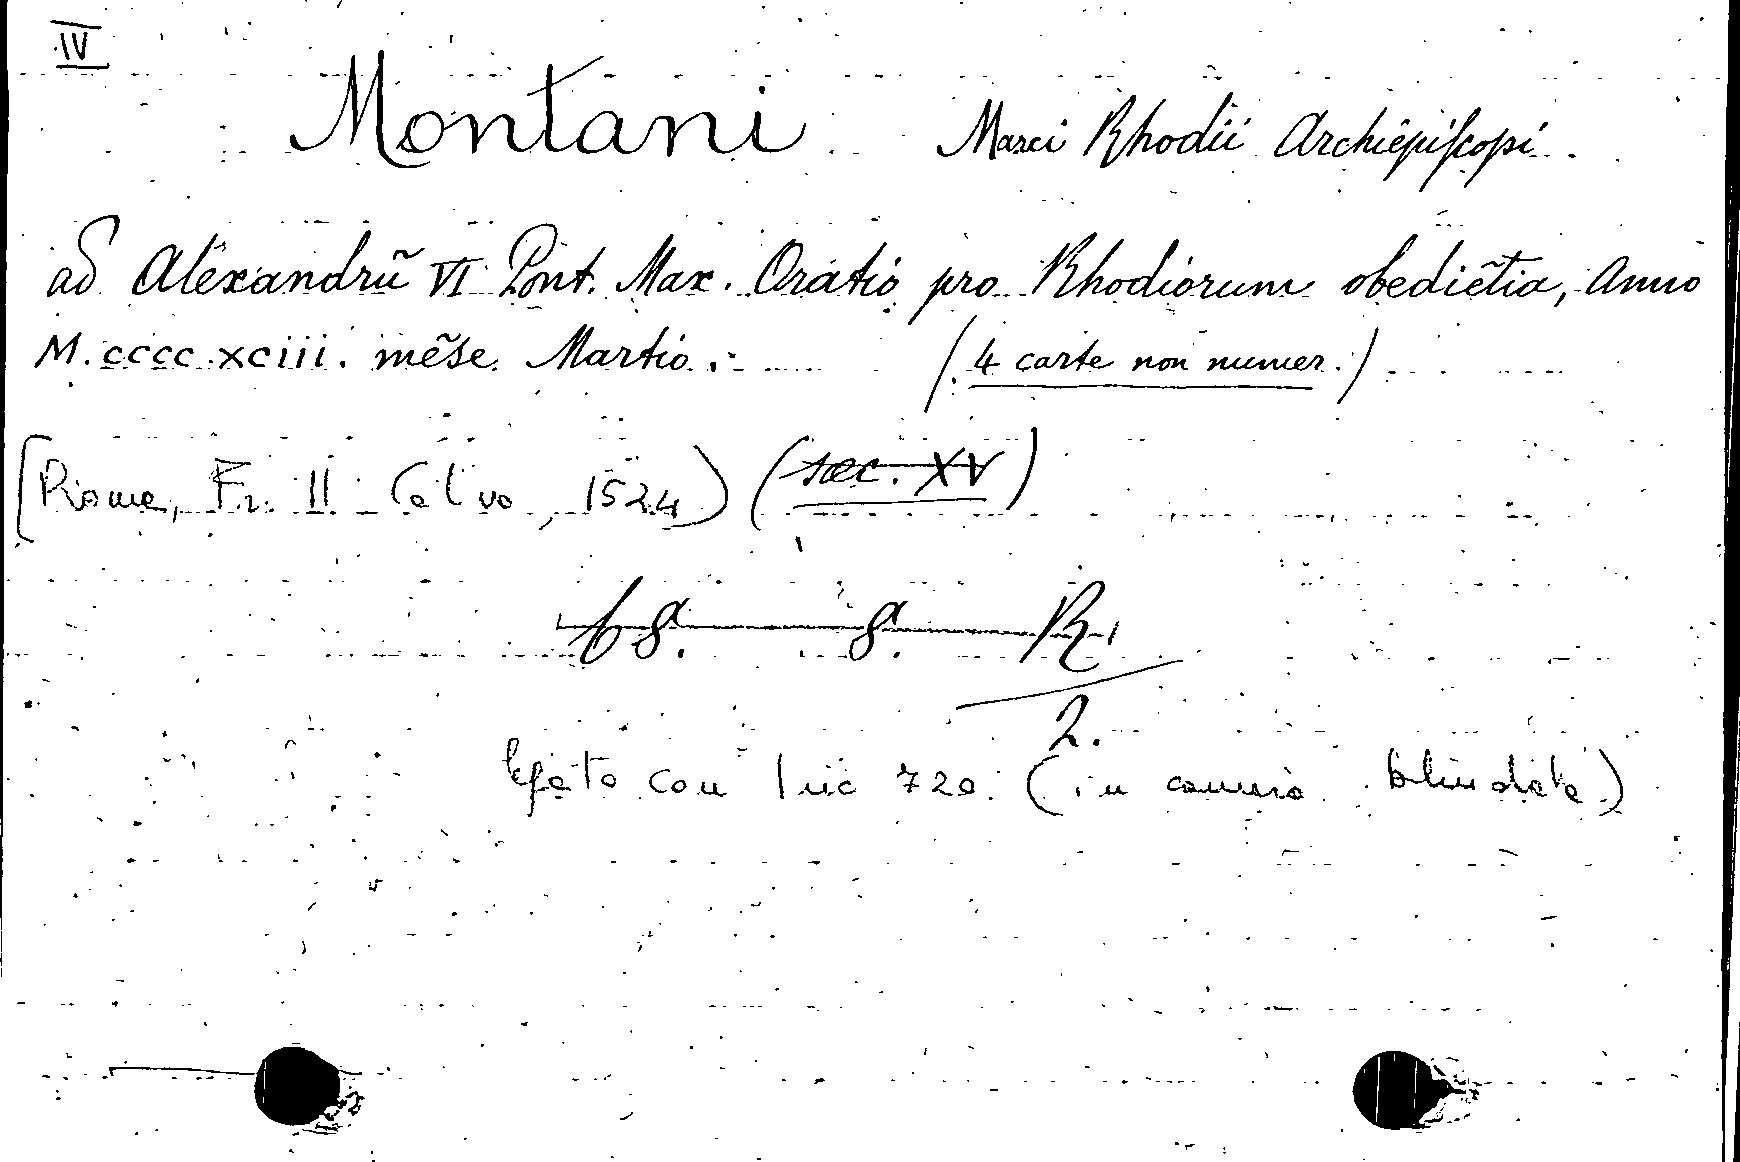 IV
Montani Marci Rhodii Archiepiscopi
ad Alexandrũ VI Pont. Max. Oratio pro Rhodiorum obediẽtia, Anno
M.cccc.xciii. mẽse Martio.- (4 carte non numer.)
[Roma, Fr. M. Calvo, 1524) (sec. XV)
68. 8. R.
2.
legato con Inc 720 (in camera blindata)